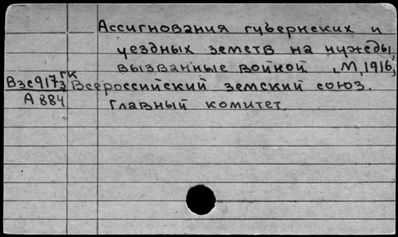 Ассигнования губернских и
уездных земств на нужды,
вызванные войной, М, 1916,
Всероссийский земский союз.
Главный комитет.
ГК
Взс9173
А884